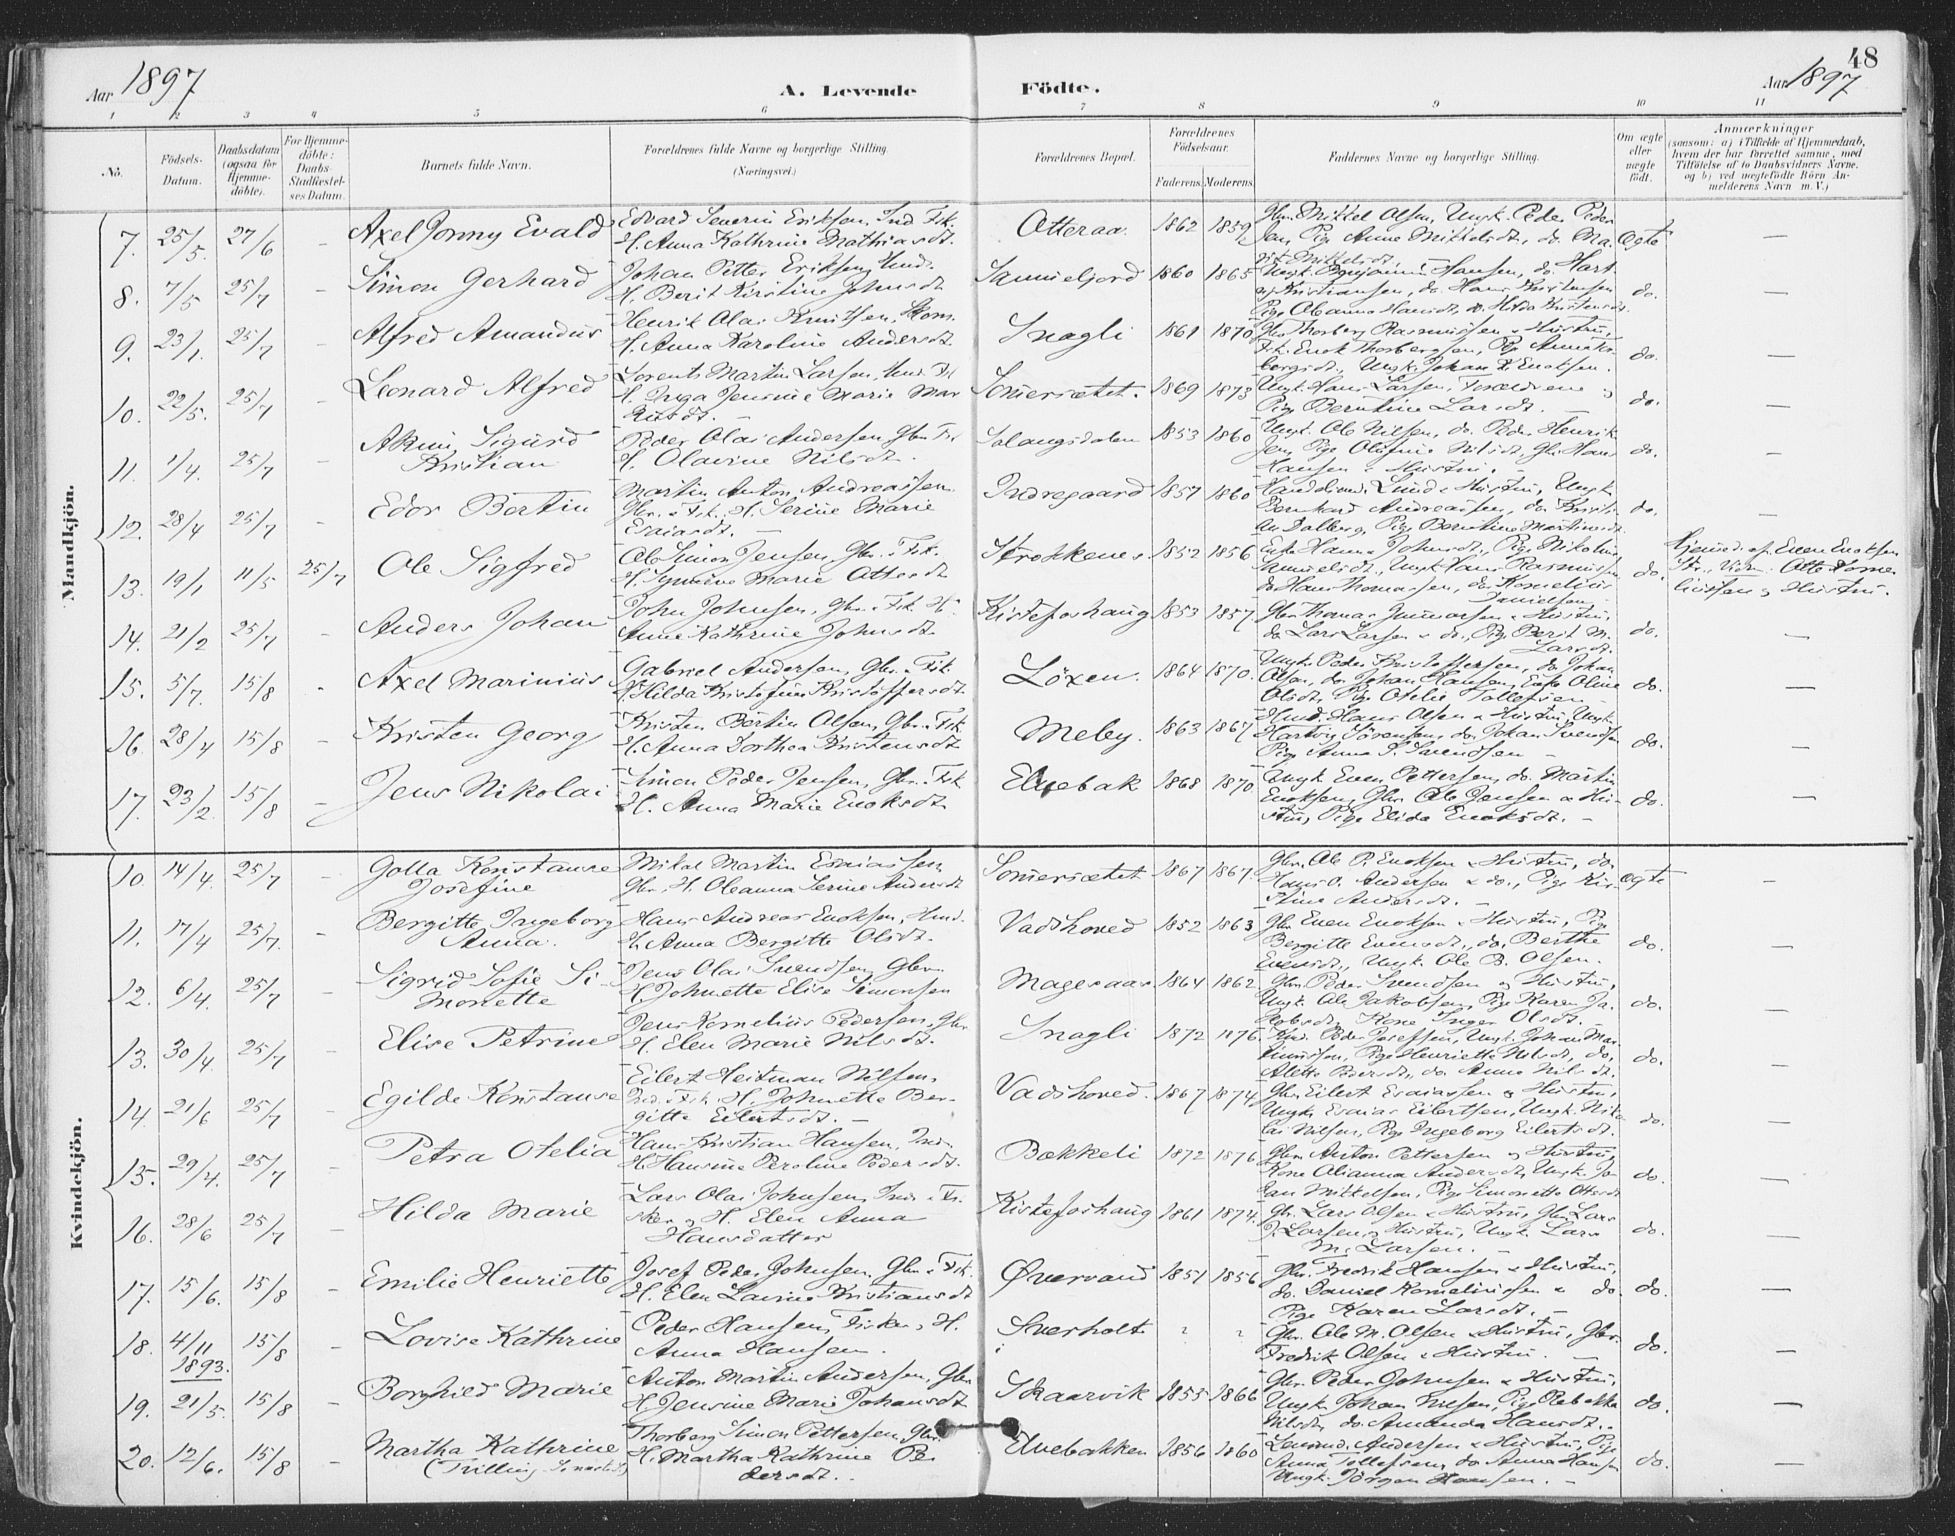 48
Aar 1897
A. Levende Födte.
Aar 1897
1 2 3 4 5 6 7 8 9 10 11
No.
Födsels-Datum.
Daabsdatum (ogsaa for Hjemme-döbte).
For Hjemme-döbte: Daabs-Stadfæstel-ses Datum.
Barnets fulde Navn.
Forældrenes fulde Navne og borgerlige Stilling.
(Næringsvei.)
Forældrenes Bopæl.
Forældrenes Födselsaar.
Faderens. Moderens.
Faddernes Navne og borgerlige Stilling.
Om ægte eller uægte födt.
Anmærkninger
(saasom: a) i Tilfælde af Hjemmedaab, hvem der har forrettet samme, med Tilföielse af to Daabsvidners Navne, og b) ved uægtefödte Börn An-melderens Navn m. V.)
Mandkjön.
7. 25/5. 27/6 - Axel Jonny Evald Edvard Severin Eriksen, Ind. Fsk. H. Anna Kathrine Mathiasdt. Otteraa. 1862 1859 Gbr. Mikkel Olsen, Ungk. Peder Peder Jens, Pige Anne Mikkelsdt., do. Ma- Mikkelsdt. ægte -
8. 7/5 25/7 - Simon Gerhard Johan Petter Eriksen, Ind. H. Berit Kirstine Johnsdt. 1860 1865 Ungk. Benjamin Hansen, do. Hart- Kristiansen, do. Hans Kristensen Pige Oleanna Hansdt. do. Hilda Kristensdt. do. -
9. 23/1. 25/7 - Alfred Amandus Henrik Olai Knutsen, H. Anna Karoline Andersdt. Snagli 1861 1870 Gbr. Thorberg Rasmussen & Hustru, Fsk. Enok Thorbergsen, Pig. Ungk. Johan Enoksen. do. -
10. 22/5. 25/7 - Leonard Alfred Lorents Martin Larsen, Ind. Fsk. H. Inga Jensine Marie Mar- Somersætet. 1869 1873 Ungk. Hans Larsen, Forældrene og Pige Berntine Larsdt. - do. -
11. 1/4. 25/7 - Sigurd Kristian Peder Olai Andersen Gbr. Fsk. H. Olavine Nilsdt. Solangsdalen 1853 1860 Ungk. Ole Nilsen, do. Peder Henrik Jens, Pige Nilsdt. Gbr. Hans Hansen & Hustru. do. -
12. 28/4 25/7 - Edor Bertin Martin Anton Andreassen Gbr. & Fsk. H. Serine Marie Esaiasdt. - Indregaard 1857 1860 Lund & Hustru, Ungk. Bernhard Andreassen, do. Kristi- Dalberg, Pige Berntine Martinsdt. do. -
13. 19/1 11/5 25/7 Ole Sigfred Ole Simon Jensen, Gbr. & Fsk. Marie Ottersdt. Strokkenes. 1852 1856 Enke Hanna Johnsdt., Pige Nikoline Samuelsdt., Ungk. Hans Rasmussen do. Hans Thomassen, do. Kornelius Danielsen do. Hjemmed. af Even Enoksen Str., Vidn. Otto Korne-liussen og Hustru.
14. 21/2 25/7 - Anders Johan John Johnsen, Gbr. & Fsk. H. Anne Kathrine Johnsdt. Kisteforshaug 1853 1857 Gbr. Thomas Gunnarsen & Hustru, do. Lars Larsen & do., Pige Berit M. Larsdt. do. -
15. 5/7. 15/8 - Axel Marinius Gabriel Andersen, Gbr. & Fsk. H. Hilda Kristofersdt. Löxen. 1864 1870. Ungk. Peder Kristoffersen, do. Johan Olsen, do. Johan Hansen, Enke Oline Olsdt., Pige Otelie Tollefsen. - do. -
16. 28/4 15/8 - Kristen Georg Kristen Bertin Olsen, Gbr. & Fsk. H. Anna Dorthea Kristensdt. Meby. 1863 1867 Ind. Hans Olsen & Hustru, Ungk. Hartvig Sörensen, do. Johan Svendsen Pige Anna S. Svendsen - do. -
17. 23/2. 15/8 - Jens Nikolai Simon Peder Jensen, Gbr. & Fsk. H. Anna Marie Enoksdt. Elvebak 1868 1870 Ungk. Even Pettersen, do. Martin Enoksen, Gbr. Ole Jensen & Hu-stru, Pige Elida Enoksdt. - do. -
Kvindekjön.
10. 14/4. 25/7 - Golla Konstanse Josefine Mikal Martin Esaiassen Gbr. H. Oleanna Serine Andersdt. Somersætet 1867 1867. Gbr. Ole P. Enoksen & Hustru, do. Hans O. Andersen & do., Pige Kir-stine Andersdt. - ægte -
11. 17/4 25/7. - Bergitte Ingeborg Anna. Hans Andreas Enoksen, Ind. H. Anna Bergitte Olsdt. Vadshoved 1852 1863 Gbr. Even Enoksen & Hustru, Pige Bergitte Evensdt., do. Berthe Evensdt., Ungk. Ole B. Olsen. do. -
12. 6/4. 25/7 - Sigrid Sofie Si-monette Jens Olai Svendsen, Gbr. H. Johnette Elise Simonsen Magesaas 1864 1862. Gbr. Peder Svendsen og Hustru, Ungk. Ole Jakobsen, Pige Karen Ja-kobsdt., Kone Inger Olsdt. - do. -
13. 30/4. 25/7 - Elise Petrine Jens Kornelius Pedersen, Gbr. H. Elen Marie Nilsdt. Snagli 1872 1876. Ind. Peder Josefsen, Ungk. Johan Mar- Pige Henriette Nilsdt., do. do. Anne Nilsdt. do. -
14. 21/6 25/7 - Egilde Konstanse Eilert Heitman Nilsen, Ind. & Fsk. H. Johnette Ber-gitte Eilertsdt. - Vadshoved. 1867 1874 Gbr. Eilert Esaiassen & Hustru, Ungk. Esaias Eilertsen, Ungk. Niko-lai Nilsen, Pige Ingeborg Eilertsdt. do. -
15. 29/4. 25/7 - Petra Otelia Hans Kristian Hansen, Ind. H. Hansine Peroline Pedersdt. Bækkeli 1872 1876 Gbr. Anton Pettersen og Hustru, Kone Olianna Andersdt., Ungk. Jo-han Mikkelsen, Pige Simonette Ottersdt. do. -
16. 28/6 25/7 - Hilda Marie Lars Olai Johnsen, Ind. & Fi-sker og H. Elen Anna Hansdatter Kisteforshaug 1861 1874. Gbr. Lars Olsen & Hustru, Gbr. Lars J. Larsen & Hustru, Ungk. Lars M. Larsen. - do. -
17. 15/6. 15/8 - Emilie Henriette Josef Peder Johnsen, Gbr. & Fsk. H. Elen Lavine Kristiansdt. Övervand 1851 1856 Gbr. Fredrik Hansen & Hustru, do. Daniel Korneliussen & do. Pige Karen Larsdt. - do. -
18. 4/11 1893. 15/8 - Lovise Kathrine Peder Hansen, Fisker, H. Anna Hansen. Sverholt ? ? Gbr. Ole M. Olsen & Hustru, Gbr. Fredrik Olsen & Hustru. - do. -
19. 21/5. 15/8 - Borghild Marie Anton Martin Andersen, Gbr. H. Jensine Marie Johansdt. Skaarvik 1855 1866 Gbr. Peder Johnsen & Hustru, Ungk. Johan Nilsen, Pige Rebekka Nilsdt., do. Amanda Hansdt. - do. -
20. 12/6. 15/8 - Martha Kathrine (Tvilling Thorberg Simon Pettersen, Gbr. H. Martha Kathrine Pe-dersdt. - Elvebakken 1856 1860 Andersen & Hustru, Pige Anna Tollefsen, do. Anna Hansen Ungk. Jörgen Hansen. - do. -